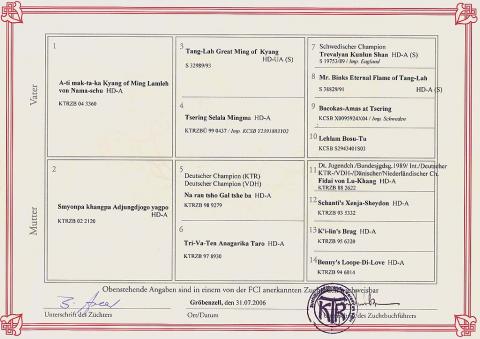 Vater
Mutter
1
A-ti mak-ta-ka Kyang of Ming Lamleh
von Nama-schu HD-A
KTRZB 04 3360
2
Smyonpa khangpa Adjungdjogo yagpo
HD-A
KTRZB 02 2120
3
Tang-Lah Great Ming of Kyang
HD-UA (S)
S 32989/93
4
Tsering Selala Mingma HD-A
KTRZBÜ 99 0437 / Imp. KCSB Y2391883102
5
Deutscher Champion (KTR)
Deutscher Champion (VDH)
Na rau tsho Gal tshe ba HD-A
KTRZB 98 9279
6
Tri-Va-Ten Anagarika Taro HD-A
KTRZB 97 8930
7
Schwedischer Champion
Trevalyan Kunlun Shan HD-A (S)
S 19753/89 / Imp. England
8
Mr. Binks Eternal Flame of Tang-Lah
S 38829/91 HD-A (S)
9
Bacokas-Amas at Tsering
KCSB X0095924X04 / Imp. Schweden
10
Lehlam Bosu-Tu
KCSB S2943401S03
11
Dt. Jugendch./Bundesjgdsg. 1989/ Int./Deutscher
KTR-/VDH-/Dänischer/Niederländischer Ch.
Fidai von Lu-Khang HD-A
KTRZB 88 2622
12
Schanti's Xenja-Sheydon HD-A
KTRZB 93 5332
13
K'i-lin's Brag HD-A
KTRZB 95 6320
14
Benny's Loope-Di-Love HD-A
KTRZB 94 6014
Obenstehende Angaben sind in einem von der FCI anerkannten Zuchtbuch nachweisbar
Gröbenzell, den 31.07.2006
Unterschrift des Züchters
Ort/Datum
des Zuchtbuchführers
KTR